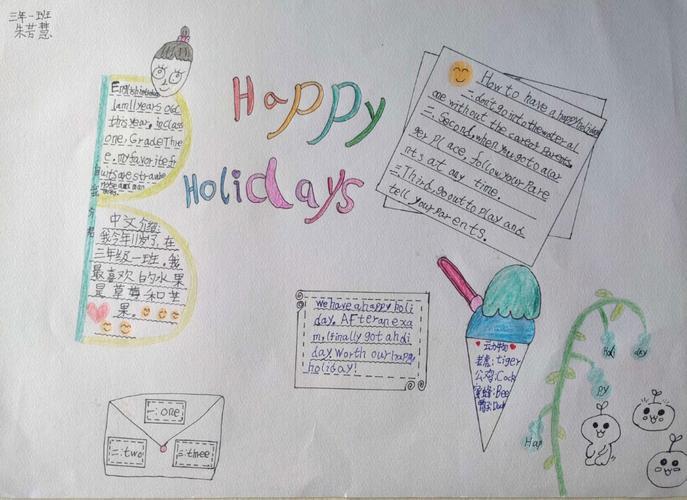 三年一班
朱若慧
Happy
Holidays
English
I am 11 years old
this year. In class
one, Grade Thre
e. my favorite fr
uits are strawbe
自我介绍
中文介绍
我今年11岁了，在
三年级一班。我
最喜欢的水果
是草莓和苹
果。
How to have a happy holiday
一、don't go into the water al
one without the care of Parents.
二、Second, when you go to a lar
ger Place, follow your Pare
nts at any time.
三、Third, go out to play and
tell your Parents.
we have a happy holi
day. AFter an exa
m, I finally got a holi
day. Worth our happy
holiday!
动物
老虎:tiger
公鸡:Cock
蜜蜂:Bee
鸭子:Duck
Holi
day
py
Hap
一:one
二:two
三:three